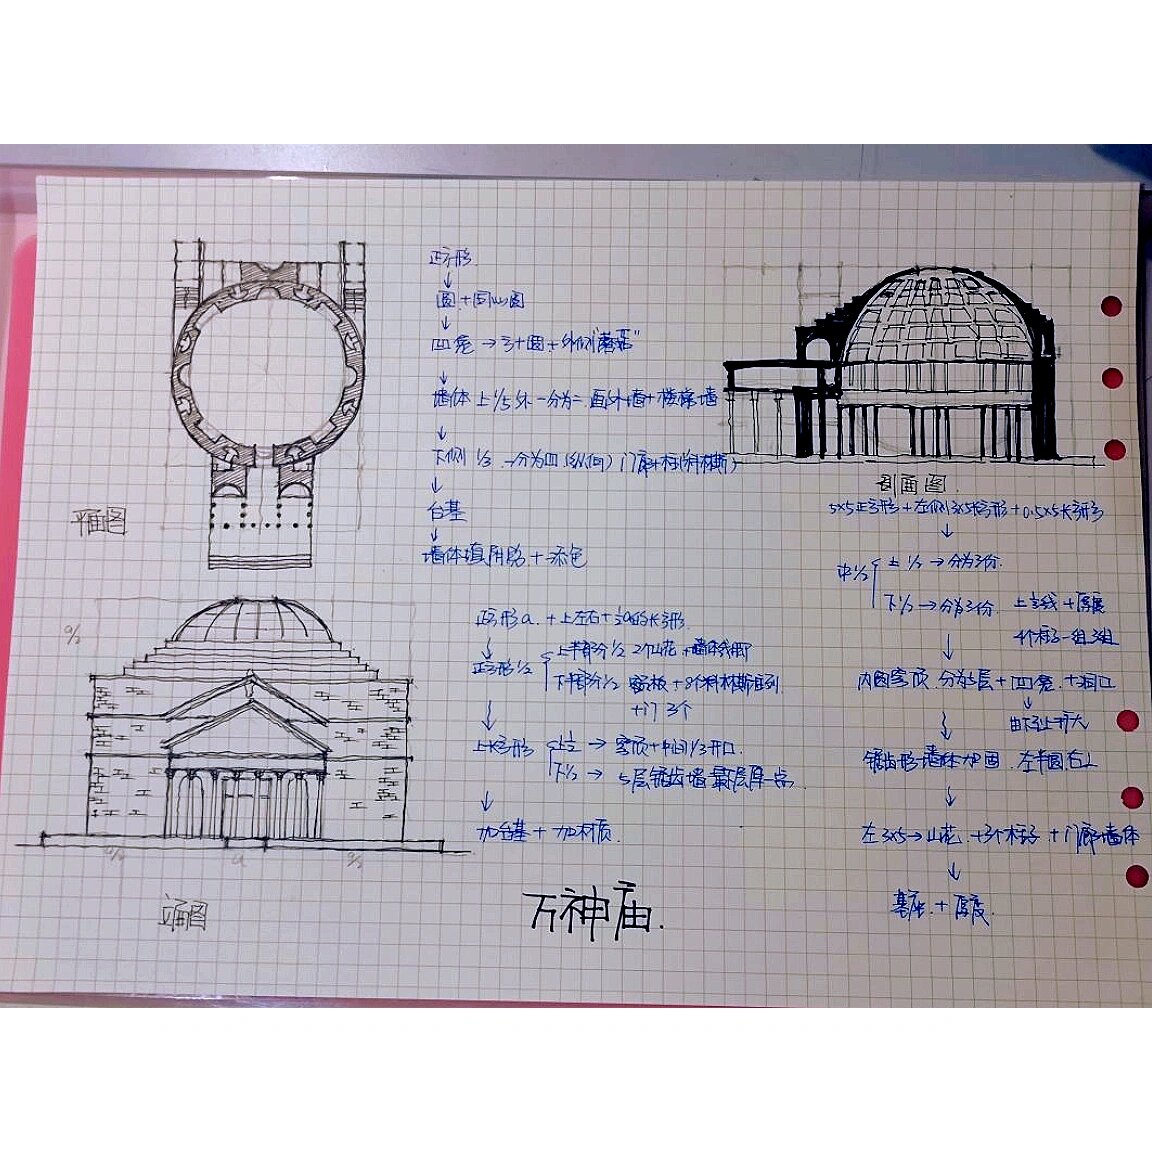 正方形
↓
圆+同心圆
↓
凹龛→方+圆+外侧"蘑菇"
↓
墙体 上1/5 外一分为二 画外墙+楼梯墙
↓
下侧 1/3 一分为四(纵向) 门廊+柱(科林斯)
↓
台基
↓
墙体填用 + 添色
平面图
正方形a.+上左右+ 长方形
↓
正方形1/2 上半部分1/2 2个山花+墙体线脚
下半部分1/2 +8个科林斯柱列
+门3个
↓
上长方形 上1/2 → 穹顶+中间1/3开口.
下1/2 → 5层锯齿墙 最 层厚一点.
↓
加台基+加材质.
a/2
a/2
a
a/2
立面图
万神庙.
剖面图.
5×5正方形+左侧3×5长方形+0.5×5长方形
↓
中1/2 上1/2→分为3份.
下1/2→分为3份. 上 线+厚度
4个柱子一组3组
↓
内圆穹顶 分为5层+凹龛.+洞口
↓
由下让上扩大
↓
锯齿形墙体加固.左半圆右上
↓
左3×5→山花 +3个柱子 +门廊墙体
↓
基座.+厚度.